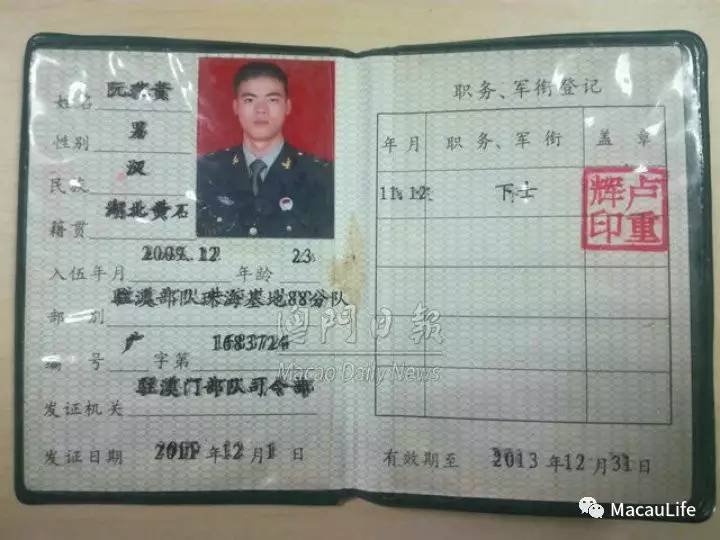 姓名
性别 男
民族 汉
籍贯 湖北黄石
入伍年月 2009.12 年龄 23
部别 驻澳部队珠海基地88分队
编号 广 字第
发证机关 驻澳门部队司令部
发证日期 2011 年 12 月 1 日
职务、军衔登记
年月 职务、军衔 盖章
11.12 下士 卢重辉印
有效期至 2013 年 12 月 31 日
澳門日報
Macao Daily News
MacauLife